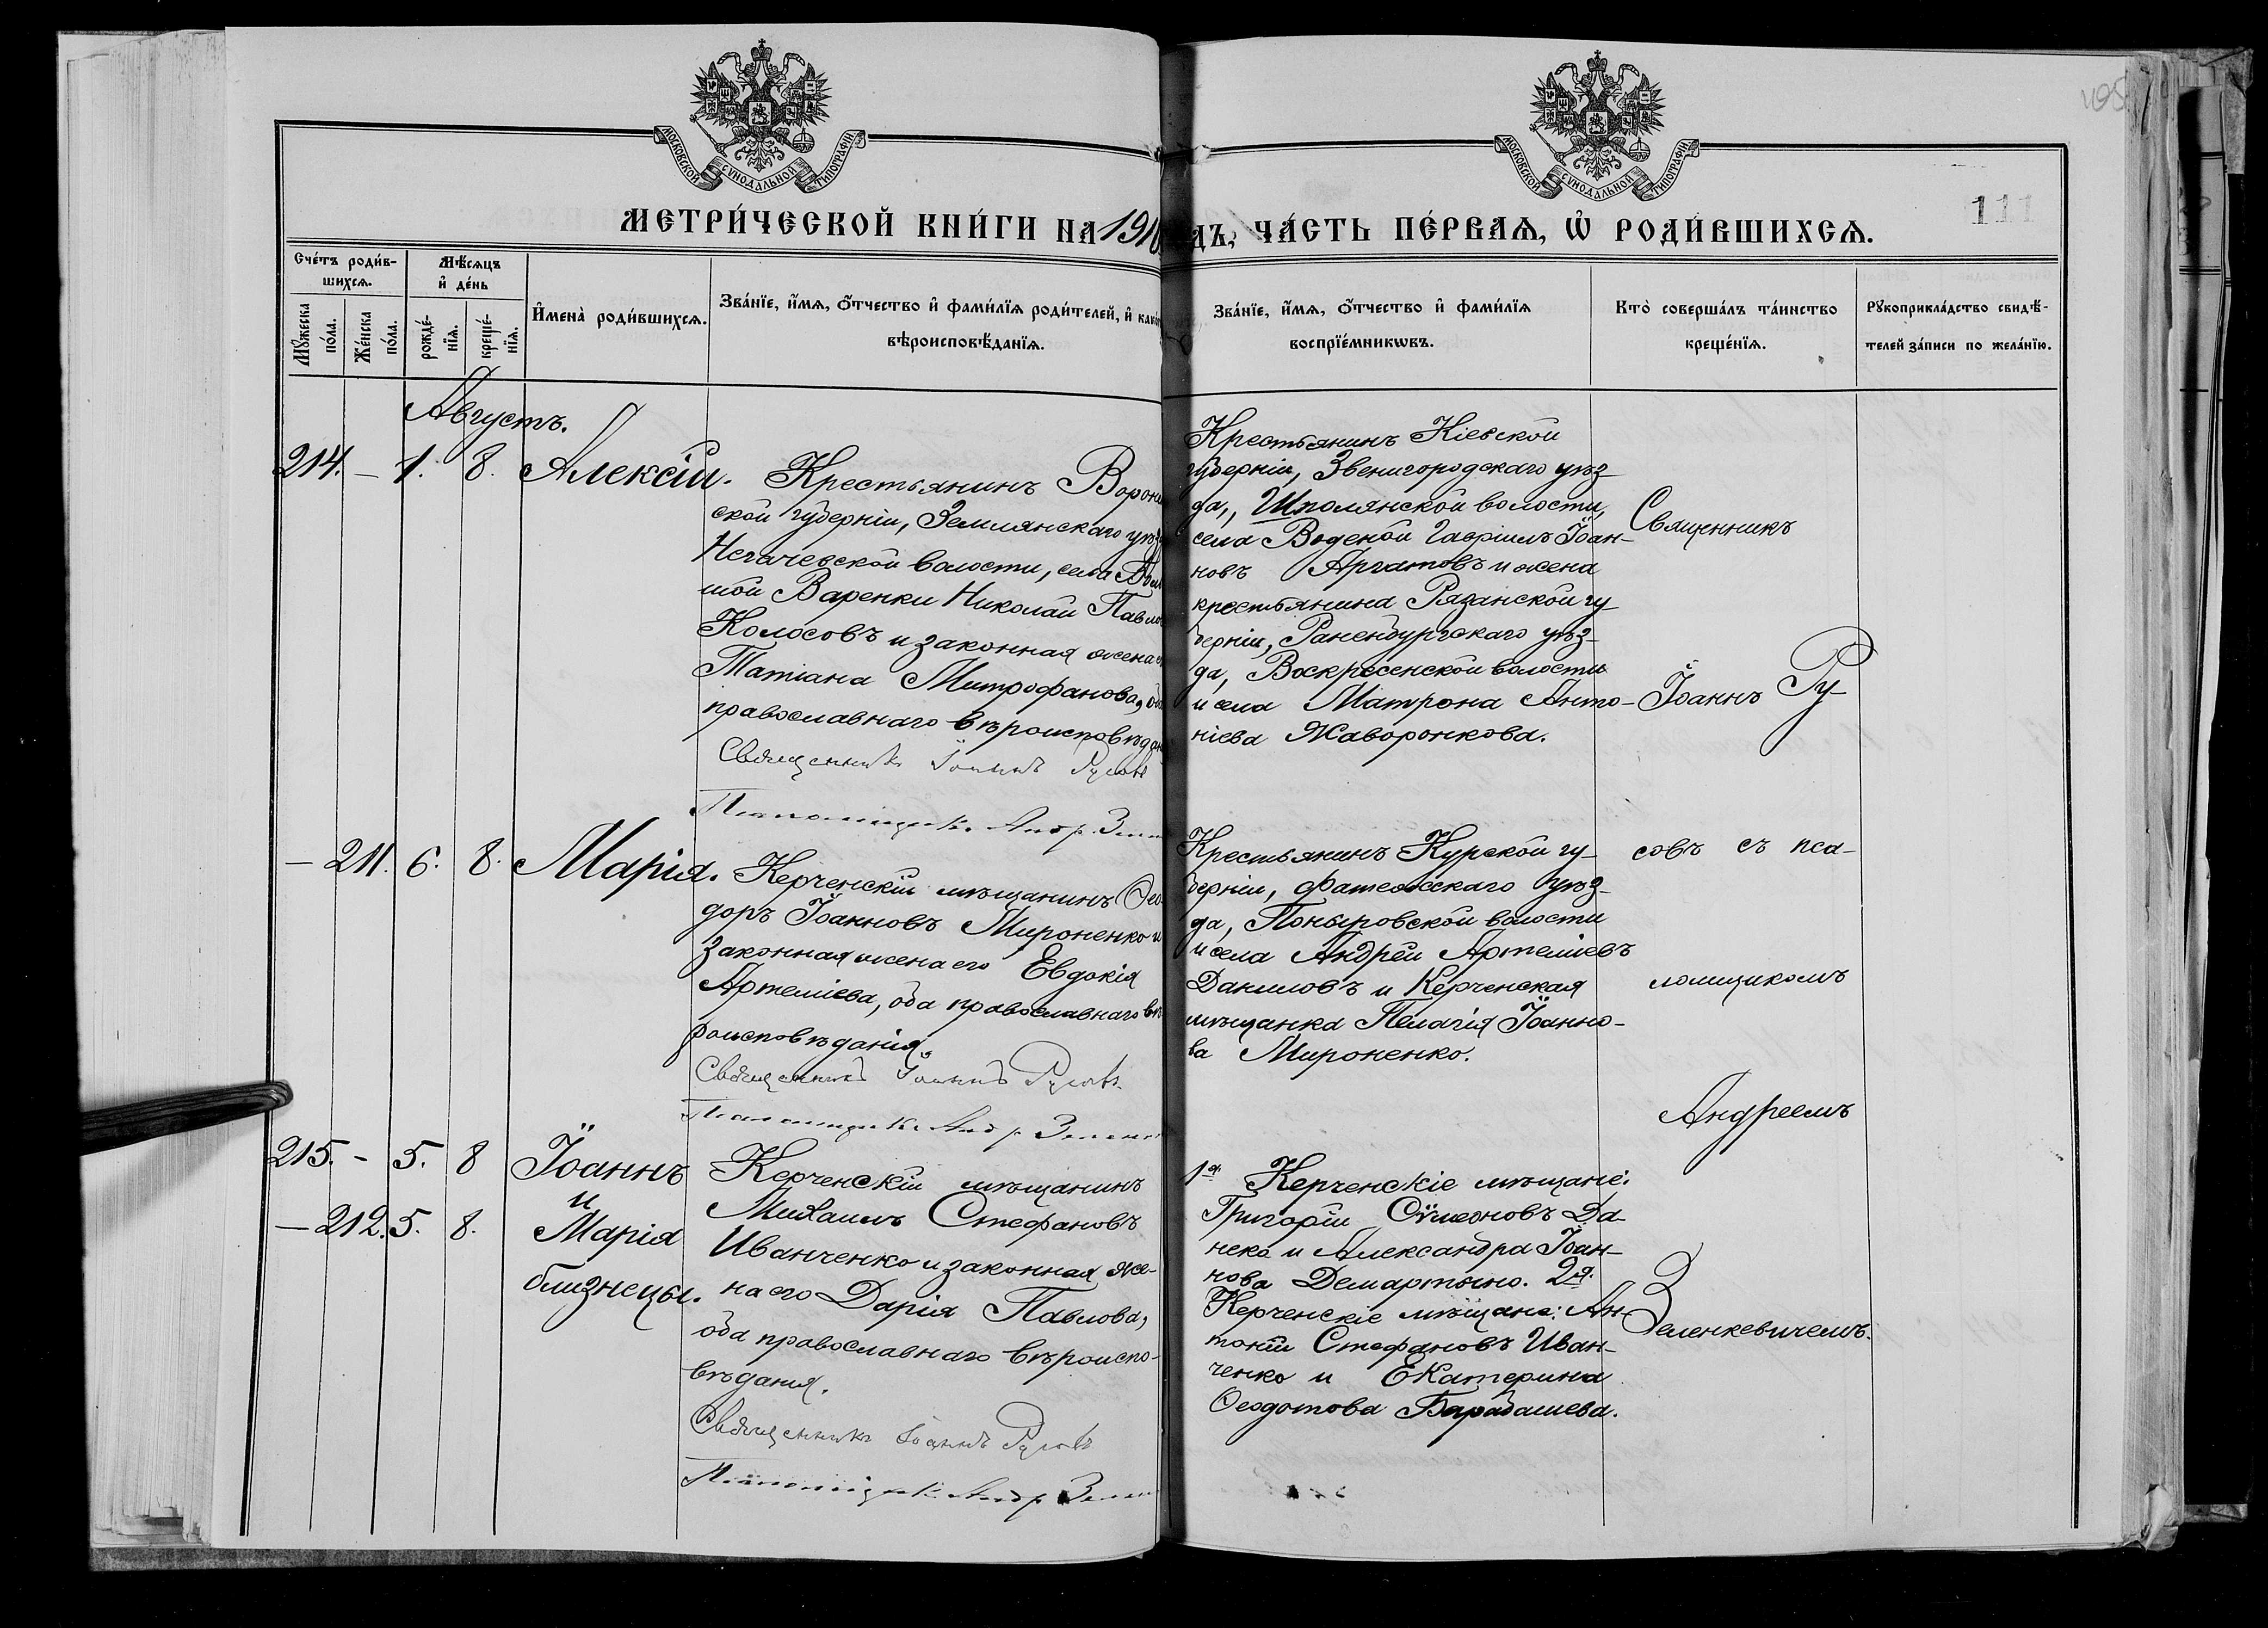 МОСКОВСКОЙ СѴНОДАЛЬНОЙ ТИПОГРАФІИ
МОСКОВСКОЙ СѴНОДАЛЬНОЙ ТИПОГРАФІИ
111
МЕТРИ́ЧЕСКОЙ КНИ́ГИ НА 1910 ДЪ, ЧА́СТЬ ПЕ́РВАѦ, Ѡ҆ РОДИ́ВШИХСѦ.
Сче́тъ роди́в-
шихсѧ.
Мꙋ́жеска
по́ла.
Же́нска
по́ла.
Мѣ́сѧцъ
и҆ де́нь
рожде́-
нїѧ.
креще́-
нїѧ.
И҆мена̀ роди́вшихсѧ.
Зва́нїе, и҆́мѧ, ѻ҆́тчество и҆ фами́лїѧ роди́телей, и҆ како
вѣроисповѣ́данїѧ.
Зва́нїе, и҆́мѧ, ѻ҆́тчество и҆ фами́лїѧ
воспрїе́мникѡвъ.
Кто̀ соверша́лъ та́инство
креще́нїѧ.
Рꙋкоприкла́дство свидѣ́-
телей за́писи по жела́нїю.
Августъ.
214. — 1. 8. Алексій.
Крестьянинъ Вороне
ской губерніи, Землянскаго уѣз
Негачевской волости, села Боль
шой Варенки Николай Павло
Колосовъ и законная жена е
Татіана Митрофанова, об
православнаго вѣроисповѣдан
Священникъ Іоаннъ Русовъ
Псаломщикъ Андр. Зелен
Крестьянинъ Кіевской
губерніи, Звенигородскаго уѣз-
да, Шполянской волости,
села Водяной Гавріилъ Іоан-
новъ Аргатовъ и жена
крестьянина Рязанской гу-
берніи, Раненбургскаго уѣз-
да, Воскресенской волости
и села Матрона Анто-
ніева Жаворонкова.
Священникъ
Іоаннъ Ру-
— 211. 6. 8. Марія.
Керченскій мѣщанинъ Ѳео
доръ Іоанновъ Мироненко и
законная жена его Евдокія
Артеміева, оба православнаго вѣ
роисповѣданія.
Священникъ Іоаннъ Русовъ
Псаломщикъ Андр. Зелен
Крестьянинъ Курской гу-
берніи, Фатежскаго уѣз-
да, Поныровской волости
и села Андрей Артеміевъ
Даниловъ и Керченская
мѣщанка Пелагія Іоанно-
ва Мироненко.
совъ съ пса-
ломщикомъ
Андреемъ
215. — 5. 8 Іоаннъ
и
— 212. 5. 8. Марія
близнецы.
Керченскій мѣщанинъ
Михаилъ Стефановъ
Иванченко и законная же-
на его Дарія Павлова,
оба православнаго вѣроиспо-
вѣданія.
Священникъ Іоаннъ Русовъ
Псаломщикъ Андр. Зелен
1я Керченскіе мѣщане:
Григорій Сѵмеоновъ Да-
неко и Александра Іоан-
нова Демартыно. 2я.
Керченскіе мѣщане: Ан-
тоній Стефановъ Иван-
ченко и Екатерина
Ѳеодотова Барабашева.
Зеленкевичемъ.